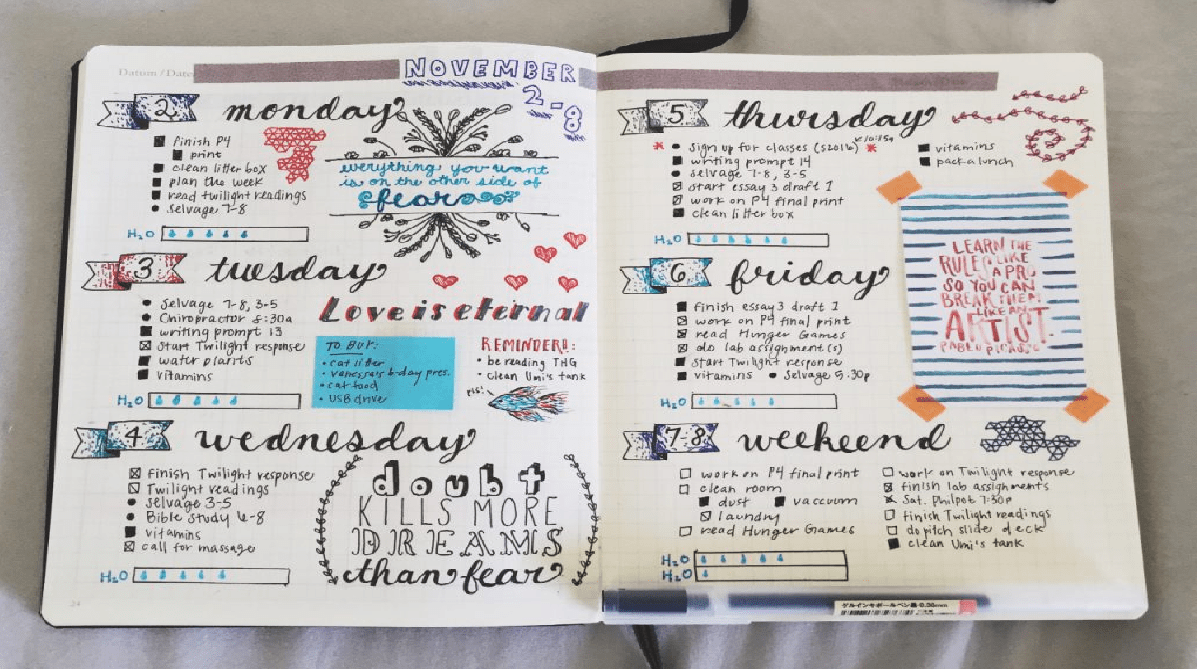 Datum / Date
NOVEMBER
2-8
2 monday
finish P4
print
clean litter box
plan the week
read twilight readings
selvage 7-8
H2O
everything you want
is on the other side of
fear
3 tuesday
selvage 7-8, 3-5
Chiropractor 8:30a
writing prompt 13
start Twilight response
water plants
vitamins
H2O
Love is eternal
TO BUY:
• cat litter
• Vanessa's b-day pres.
• cat food
• USB drive
REMINDERS:
• be reading THG
• clean Umi's tank
4 wednesday
finish Twilight response
Twilight readings
selvage 3-5
Bible study 6-8
vitamins
call for massage
H2O
doubt
KILLS MORE
DREAMS
than fear
24
5 thursday
* sign up for classes (S2016) *
writing prompt 14
selvage 7-8, 3-5
start essay 3 draft 1
work on P4 final print
clean litter box
vitamins
pack a lunch
H2O
6 friday
finish essay 3 draft 1
work on P4 final print
read Hunger Games
do lab assignment(s)
start Twilight response
vitamins • selvage 5:30p
H2O
LEARN THE
RULES LIKE
A PRO
SO YOU CAN
BREAK THEM
LIKE AN
ARTIST.
PABLO PICASSO
7-8 weekend
work on P4 final print
clean room
dust vaccuum
laundry
read Hunger Games
work on Twilight response
finish lab assignments
Sat. Philpot 7:30p
finish Twilight readings
do pitch slide deck
clean Umi's tank
H2O
H2O
ゲルインキボールペン 0.38mm